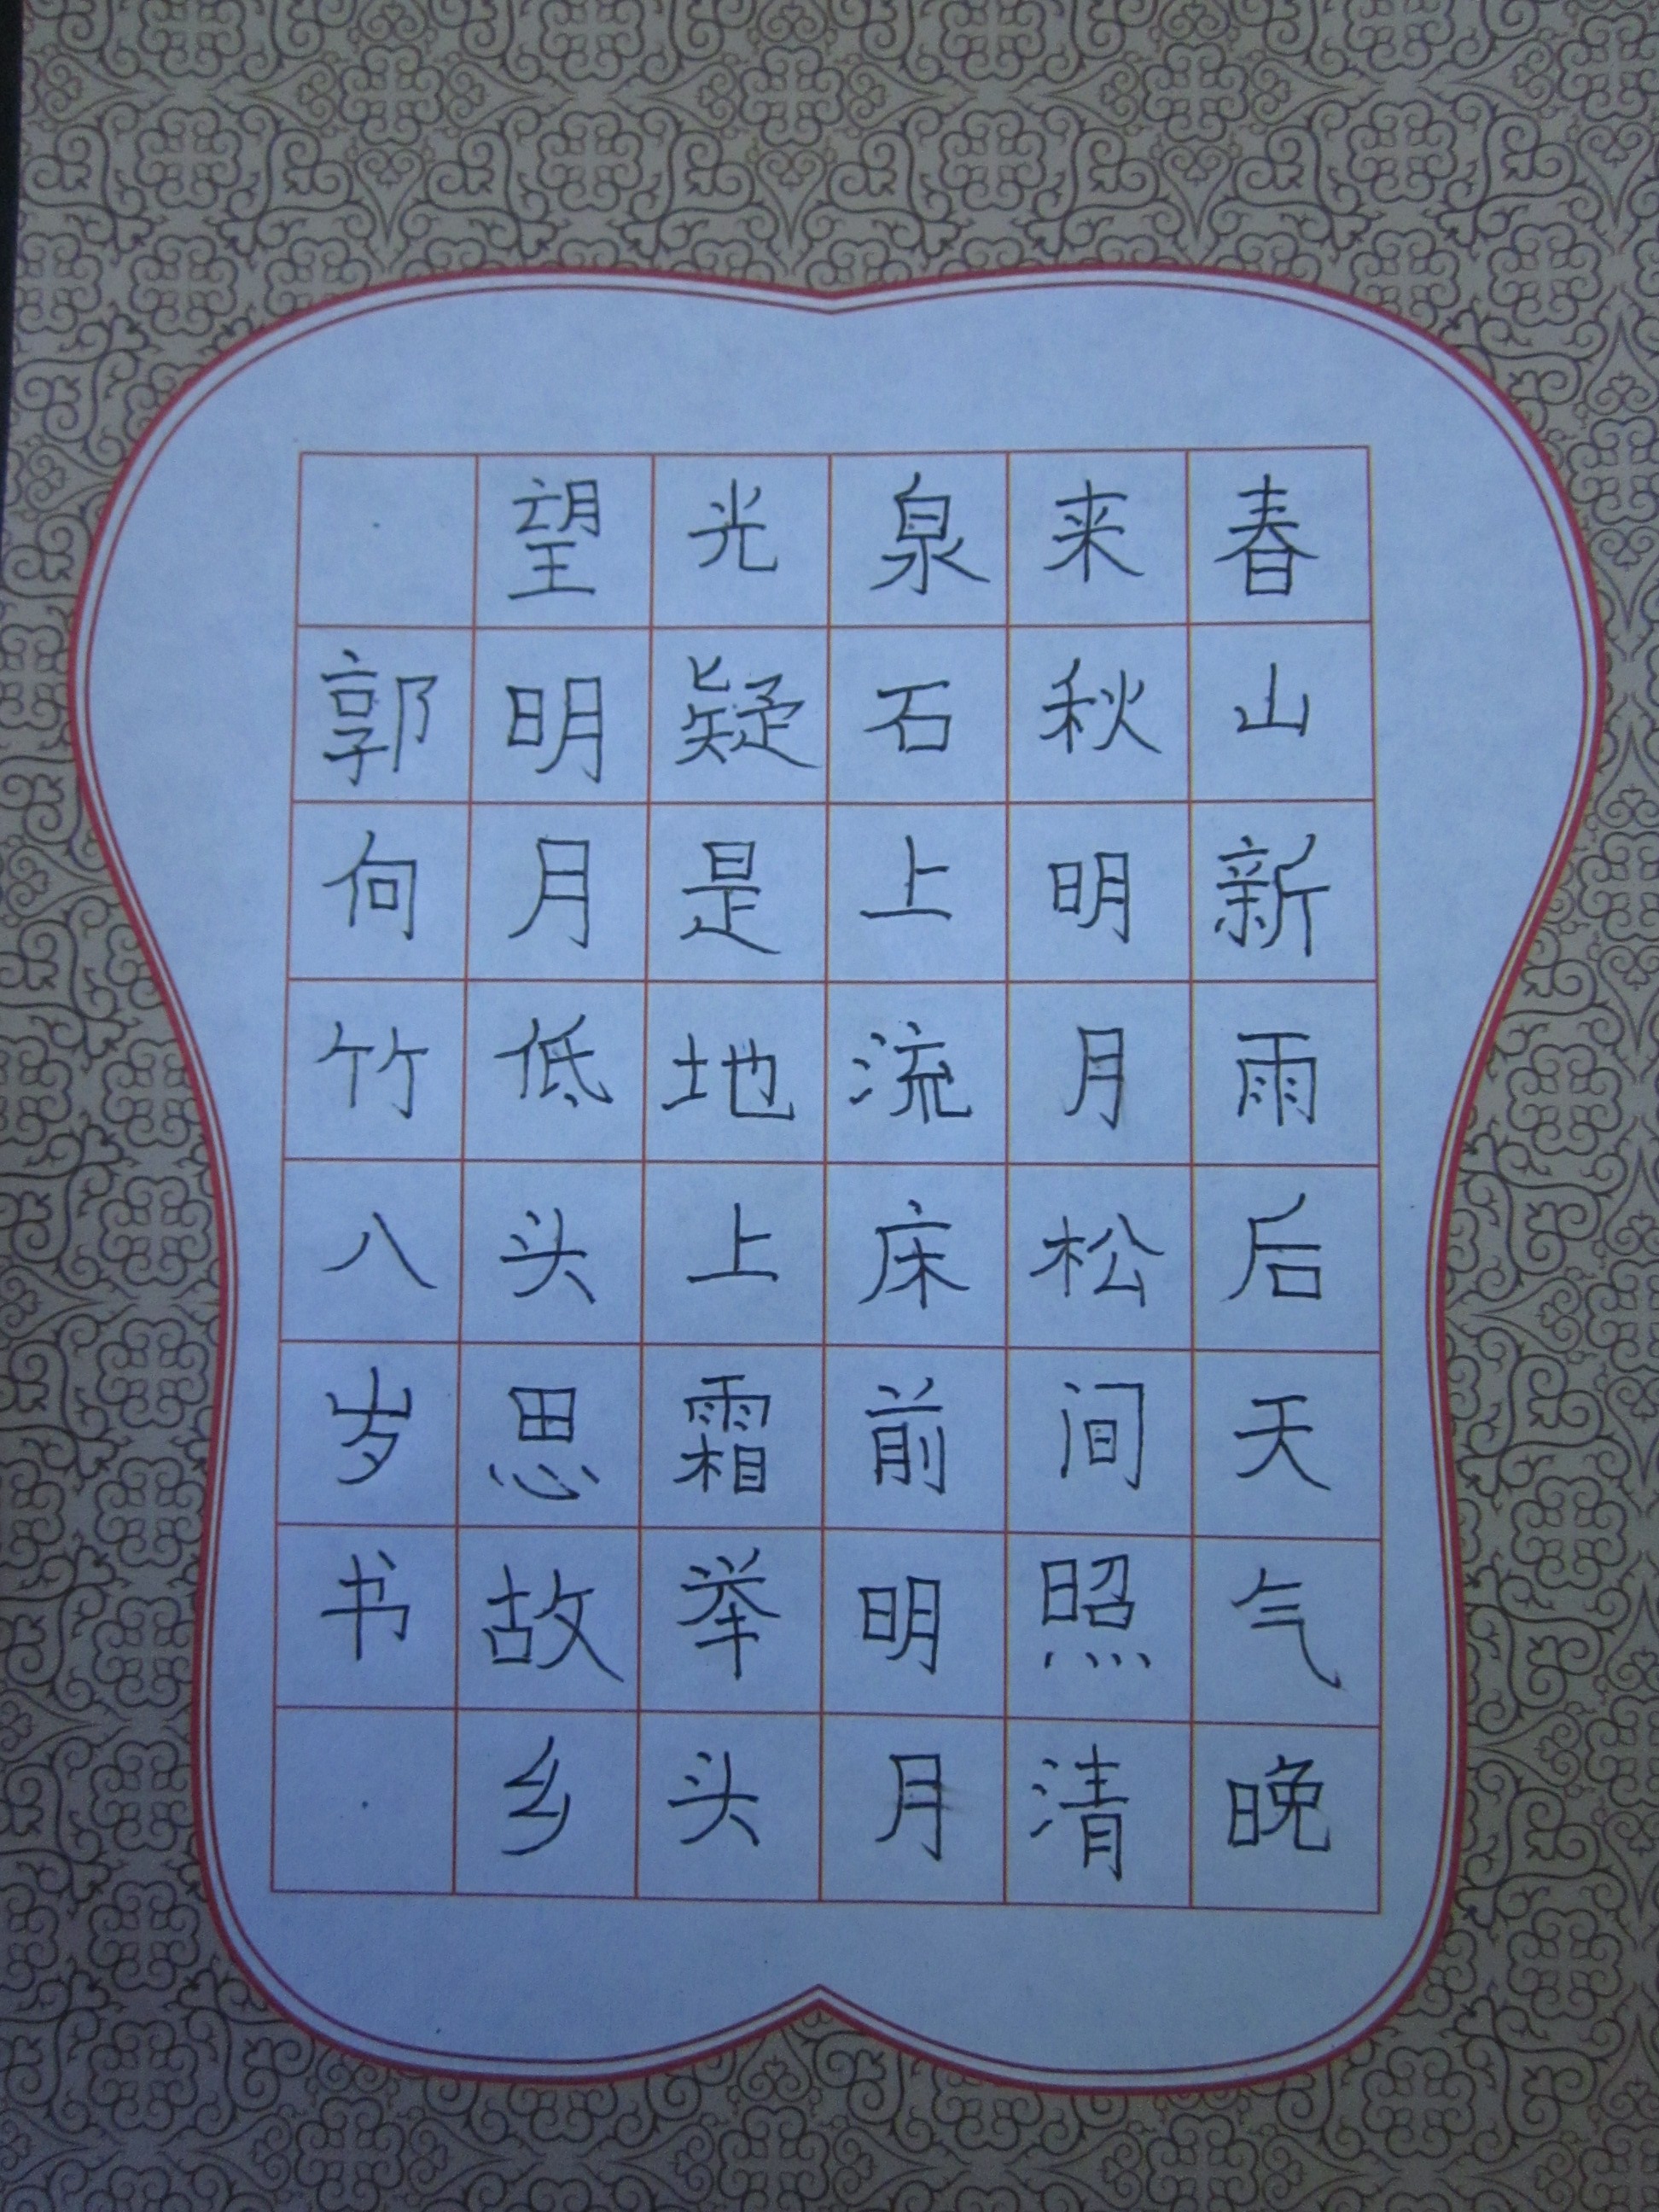 春山新雨后天气晚
来秋明月松间照清
泉石上流床前明月
光疑是地上霜举头
望明月低头思故乡
郭向竹八岁书